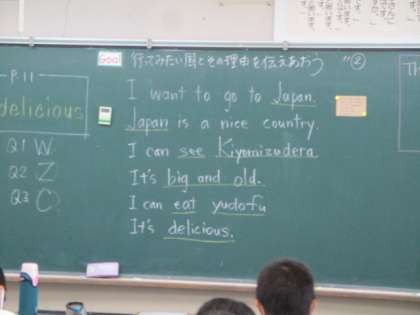 P.11
delicious
Q1 W
Q2 Z
Q3 C
Goal 行ってみたい国とその理由を伝えあおう ②
I want to go to Japan.
Japan is a nice country.
I can see Kiyomizudera
It's big and old.
I can eat yudofu
It's delicious.
Th